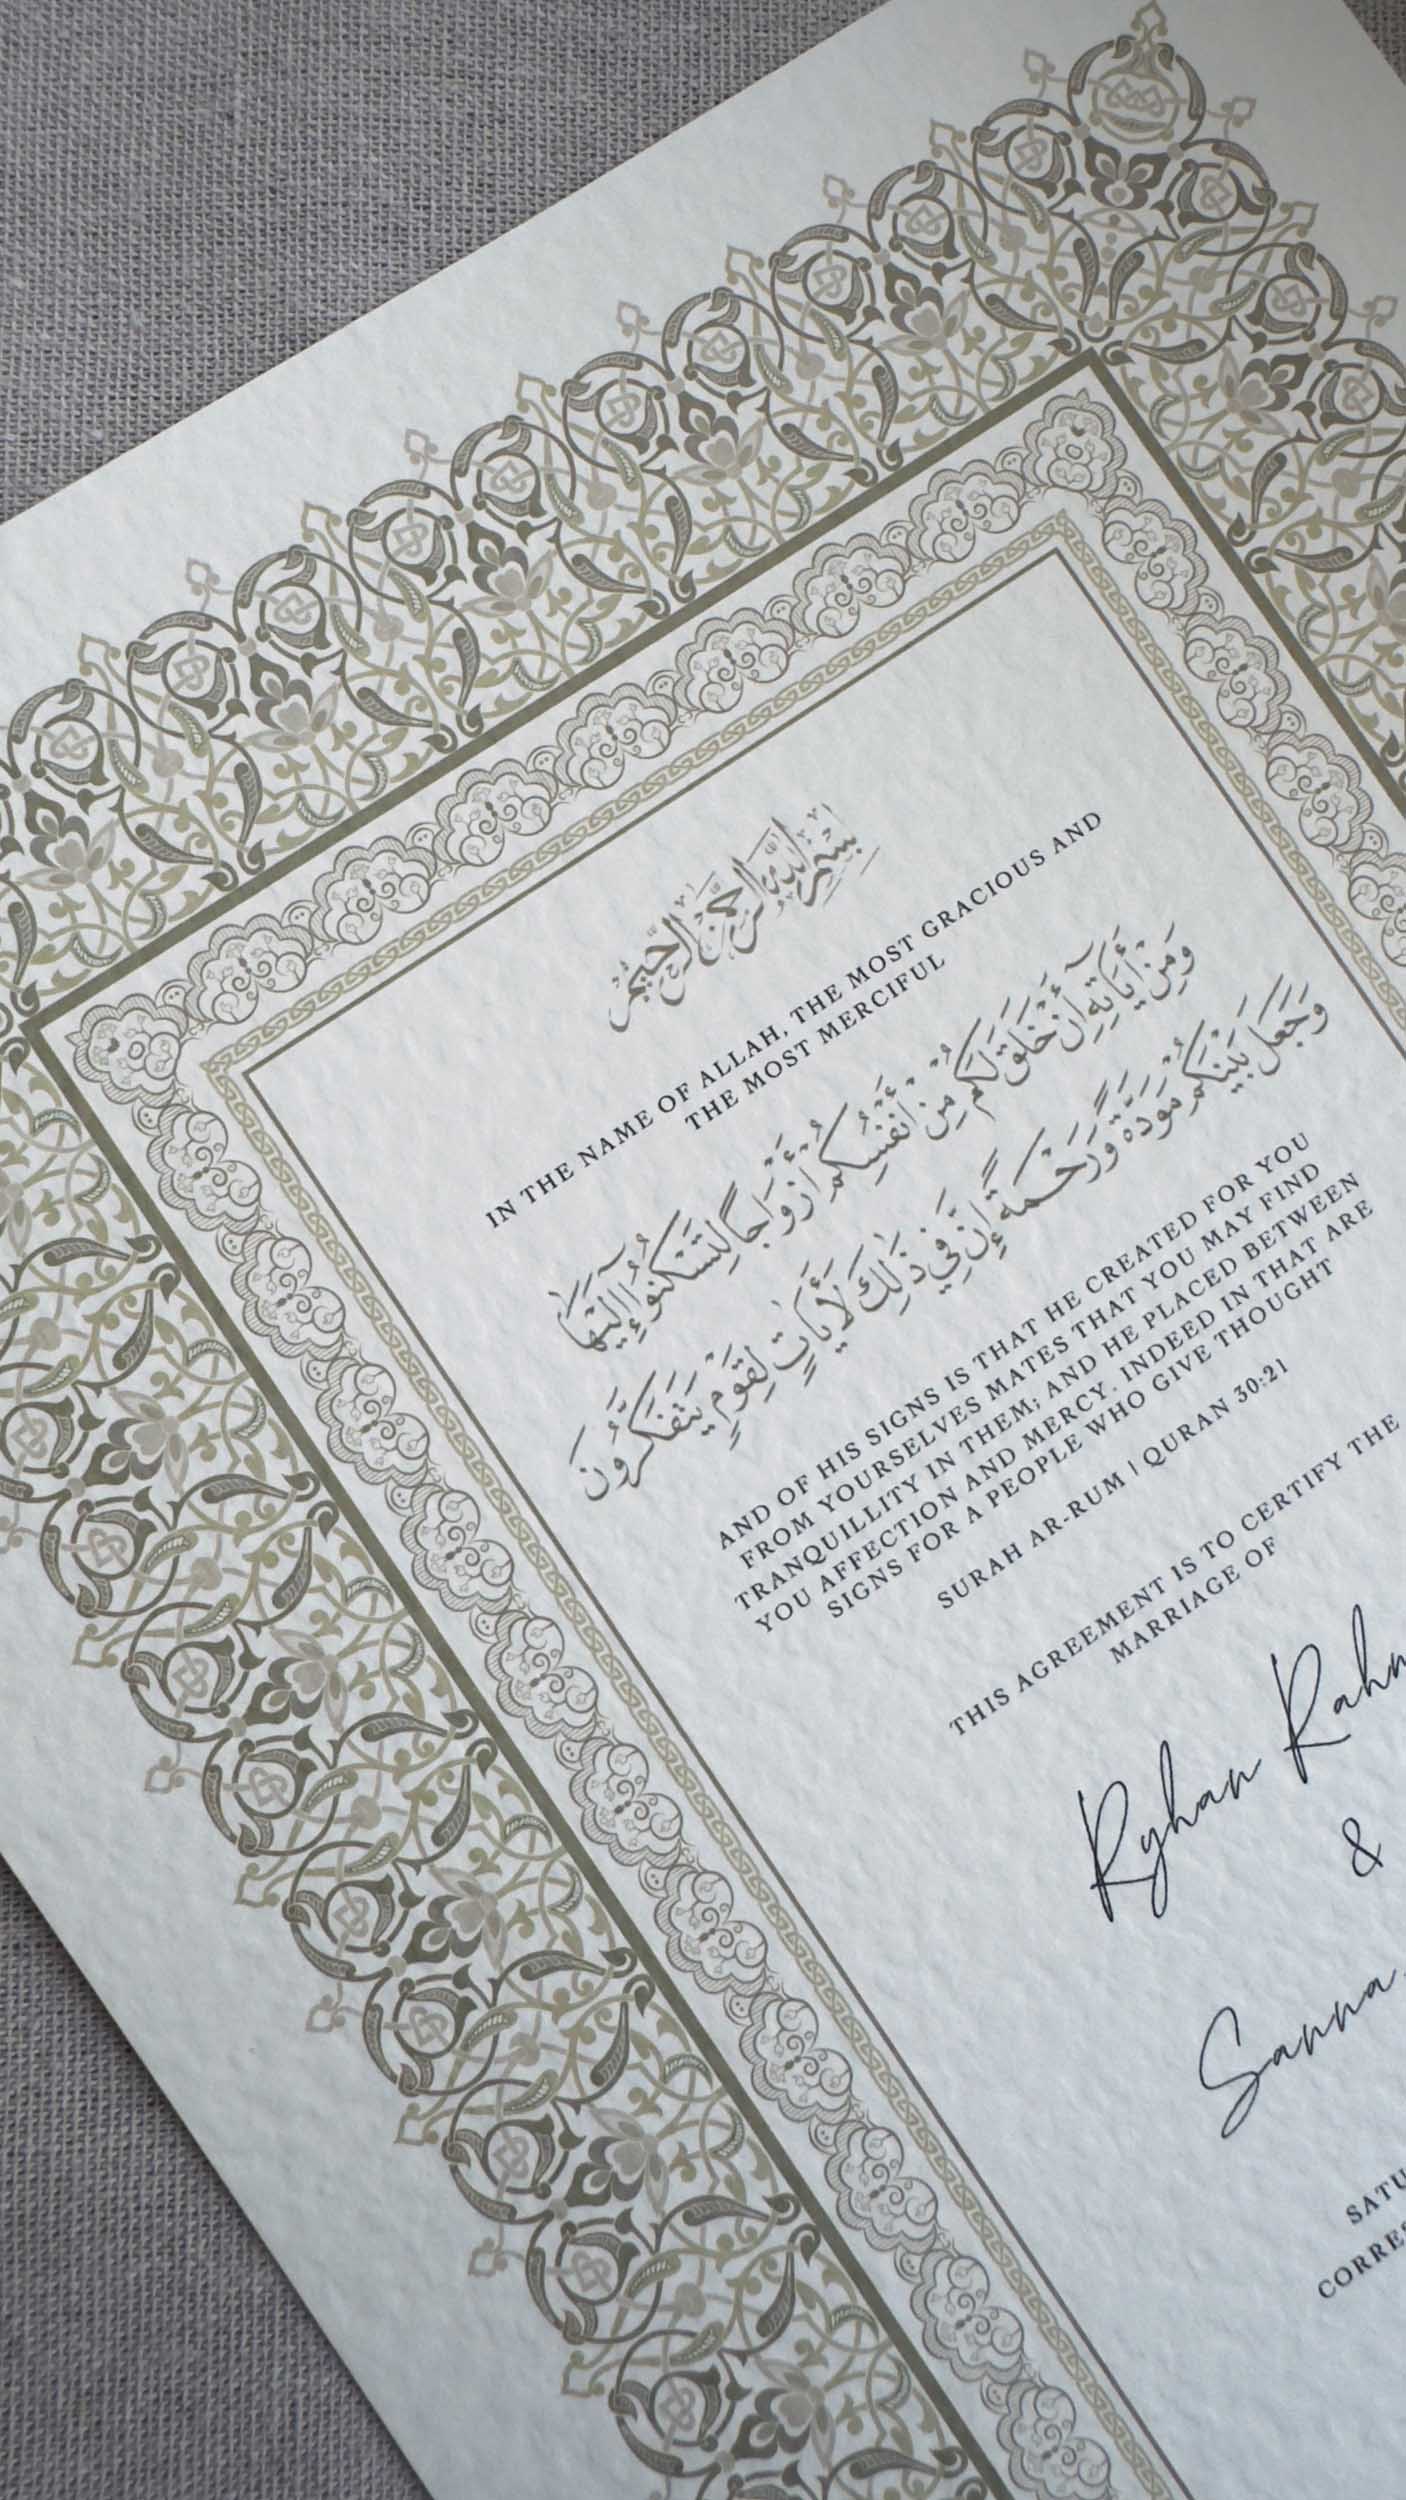 بِسْمِ اللَّهِ الرَّحْمَٰنِ الرَّحِيمِ
IN THE NAME OF ALLAH, THE MOST GRACIOUS AND
THE MOST MERCIFUL
وَمِنْ أَيَاتِهِ أَنْ خَلَقَ لَكُمْ مِنْ أَنْفُسِكُمْ أَزْوَاجًا لِتَسْكُنُوا إِلَيْهَا
وَجَعَلَ بَيْنَكُمْ مَوَدَّةً وَرَحْمَةً إِنَّ فِي ذَٰلِكَ لَأَيَاتٍ لِقَوْمٍ يَتَفَكَّرُونَ
AND OF HIS SIGNS IS THAT HE CREATED FOR YOU
FROM YOURSELVES MATES THAT YOU MAY FIND
TRANQUILLITY IN THEM; AND HE PLACED BETWEEN
YOU AFFECTION AND MERCY. INDEED IN THAT ARE
SIGNS FOR A PEOPLE WHO GIVE THOUGHT
SURAH AR-RUM | QURAN 30:21
THIS AGREEMENT IS TO CERTIFY THE
MARRIAGE OF
Ryhan Rah
&
Sanna
SATU
CORRES